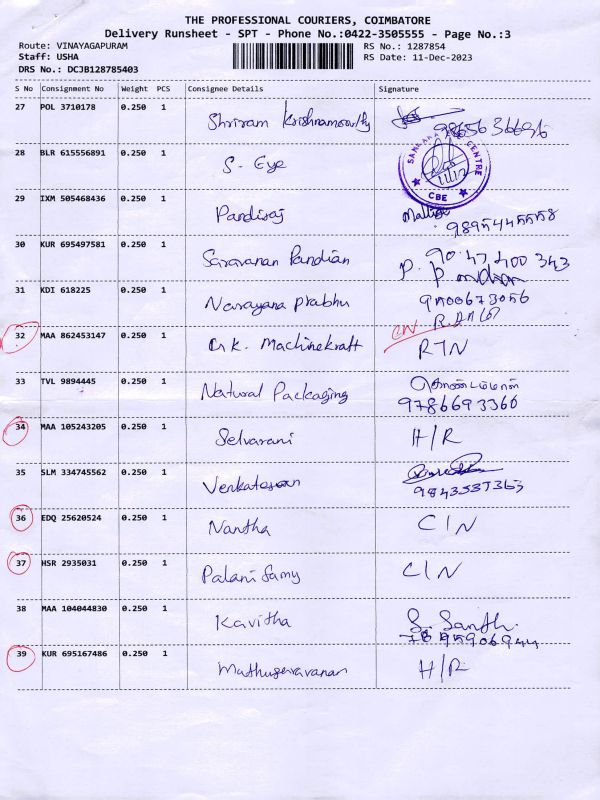 THE PROFESSIONAL COURIERS, COIMBATORE
Delivery Runsheet - SPT - Phone No.:0422-3505555 - Page No.:3
Route: VINAYAGAPURAM RS No.: 1287854
Staff: USHA RS Date: 11-Dec-2023
DRS No.: DCJB128785403
S No Consignment No Weight PCS Consignee Details Signature
27 POL 3710178 0.250 1 Shriram Krishnamoorthy
28 BLR 615556891 0.250 1 S. Eye SANKARA CENTRE CBE
29 IXM 505468436 0.250 1 Pandiraj
30 KUR 695497581 0.250 1 Saravanan Pandian P. 90 47 400 343
31 KDI 618225 0.250 1 Narayana Prabhu
32 MAA 862453147 0.250 1 Machinekraft RTN
33 TVL 9894445 0.250 1 Natural Packaging 9786693360
34 MAA 105243205 0.250 1 Selvarani H/R
35 SLM 334745562 0.250 1
36 EDQ 25620524 0.250 1 Nantha C/N
37 HSR 2935031 0.250 1 Palani Samy C/N
38 MAA 104044830 0.250 1 Kavitha S. Santh.
39 KUR 695167486 0.250 1 Mathusaravanan H/R